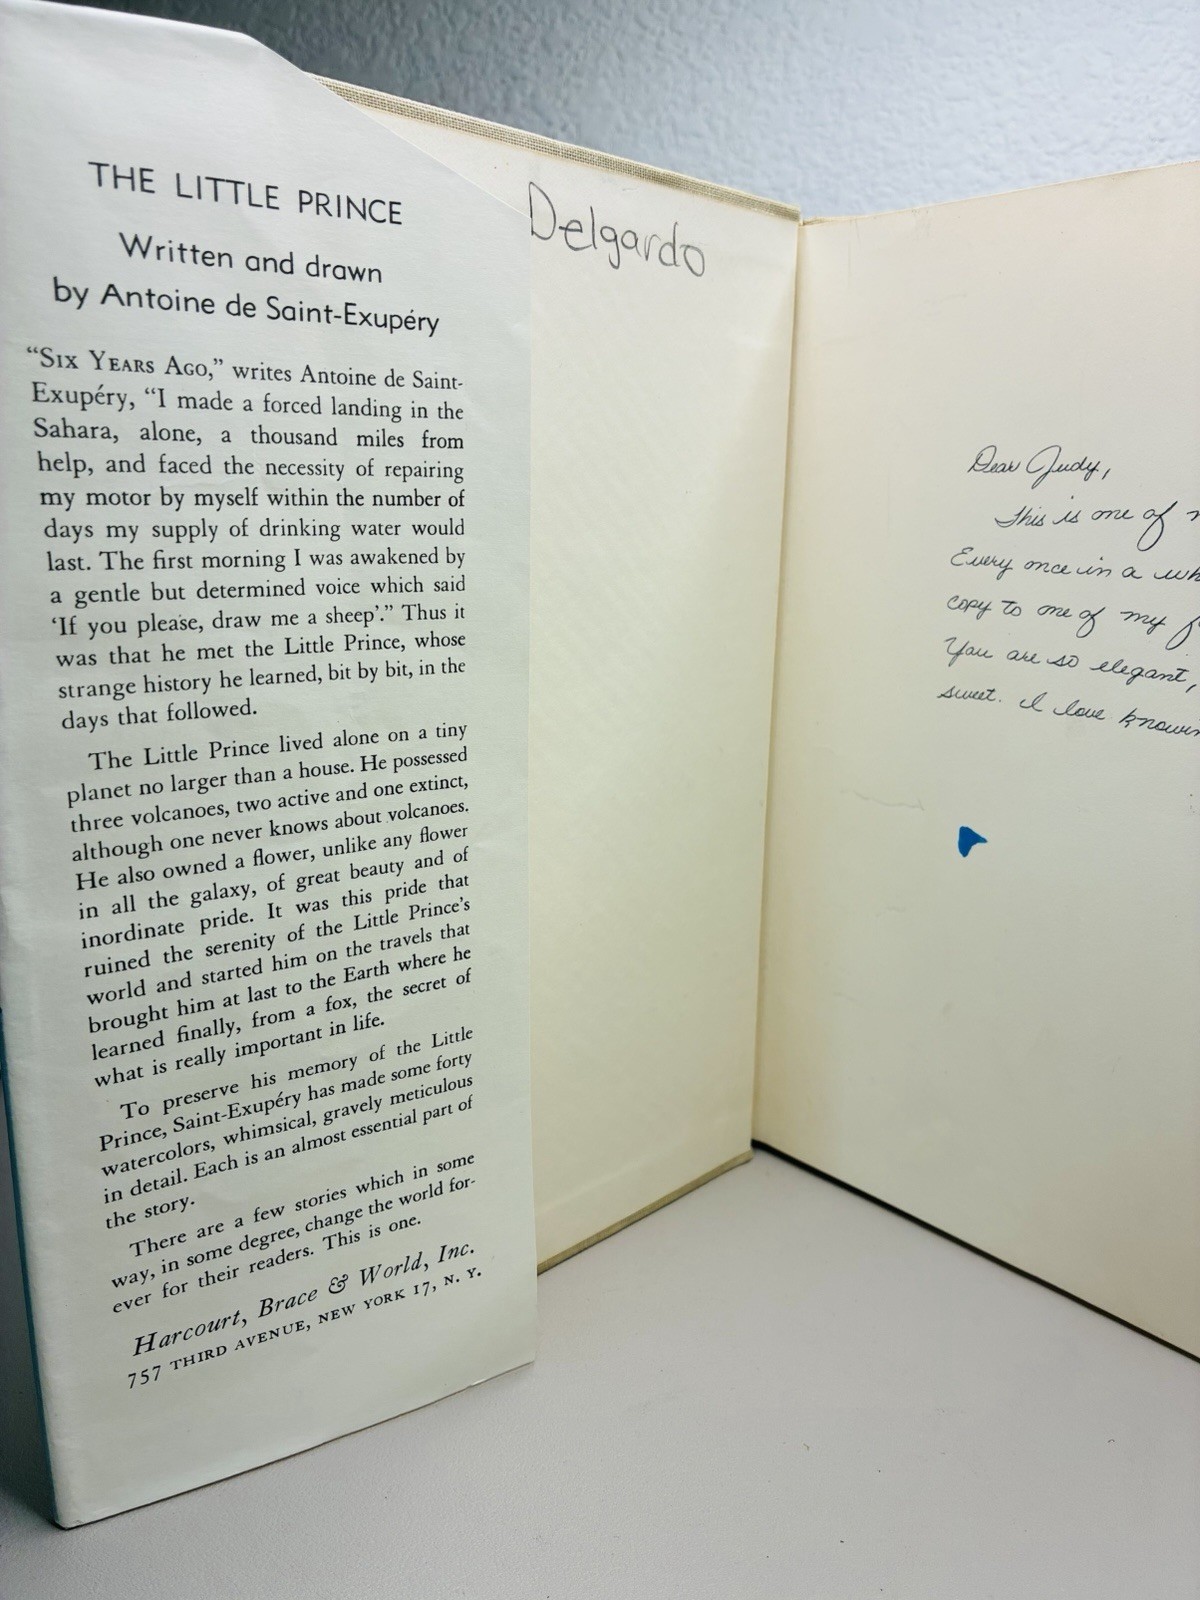 THE LITTLE PRINCE
Written and drawn
by Antoine de Saint-Exupéry
“SIX YEARS AGO,” writes Antoine de Saint-
Exupéry, “I made a forced landing in the
Sahara, alone, a thousand miles from
help, and faced the necessity of repairing
my motor by myself within the number of
days my supply of drinking water would
last. The first morning I was awakened by
a gentle but determined voice which said
‘If you please, draw me a sheep’.” Thus it
was that he met the Little Prince, whose
strange history he learned, bit by bit, in the
days that followed.
The Little Prince lived alone on a tiny
planet no larger than a house. He possessed
three volcanoes, two active and one extinct,
although one never knows about volcanoes.
He also owned a flower, unlike any flower
in all the galaxy, of great beauty and of
inordinate pride. It was this pride that
ruined the serenity of the Little Prince’s
world and started him on the travels that
brought him at last to the Earth where he
learned finally, from a fox, the secret of
what is really important in life.
To preserve his memory of the Little
Prince, Saint-Exupéry has made some forty
watercolors, whimsical, gravely meticulous
in detail. Each is an almost essential part of
the story.
There are a few stories which in some
way, in some degree, change the world for-
ever for their readers. This is one.
Harcourt, Brace & World, Inc.
757 THIRD AVENUE, NEW YORK 17, N. Y.
Delgardo
Dear Judy,
This is one of
Every once in a
copy to one of my
You are so elegant,
sweet. I love